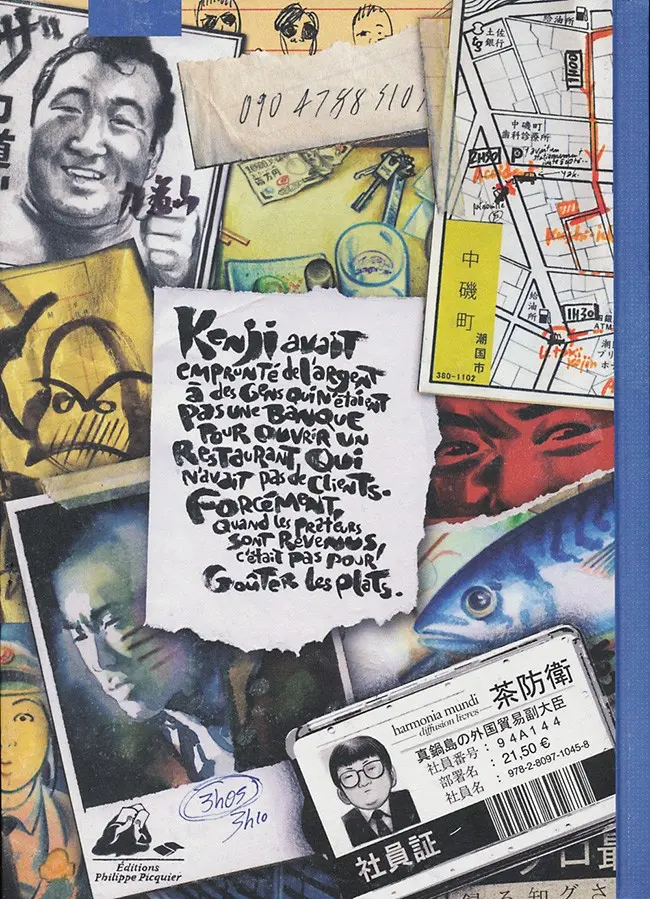 090 4788 510
土佐
銀行
給油所
1H00
中磯町
歯科診療所
2H30
P
中磯町
潮国市
380-1102
給油所
1H30
ATM
Kenji avait
emprunté de l'argent
à des gens qui n'étaient
pas une banque
pour ouvrir un
restaurant, qui
n'avait pas de clients.
Forcément,
quand les prêteurs
sont revenus,
c'était pas pour
goûter les plats.
harmonia mundi
diffusion livres
茶防衛
真鍋島の外国貿易副大臣
社員番号 : 94A144
部署名 : 21,50 €
社員名 : 978-2-8097-1045-8
社員証
3h05
3h10
Éditions
Philippe Picquier